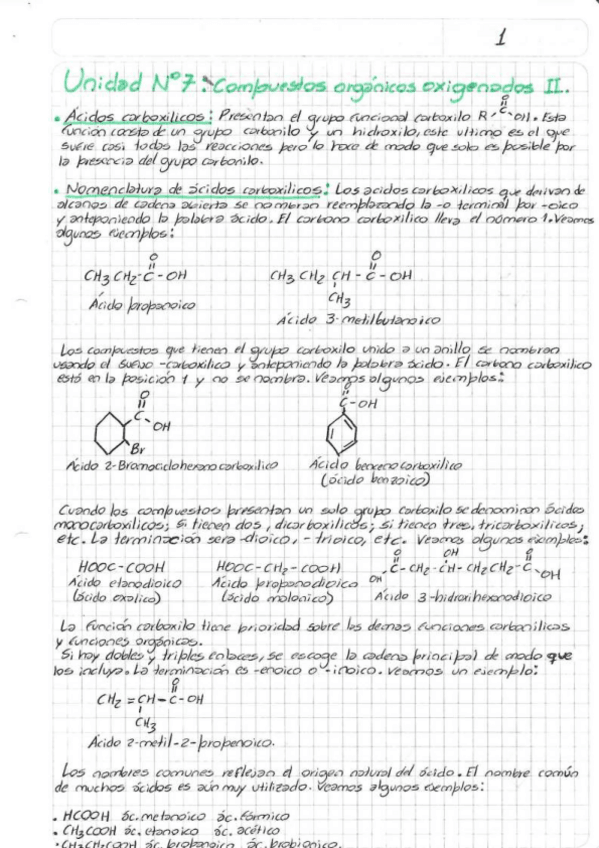 1
Unidad Nº7: Compuestos orgánicos oxigenados II.
• Ácidos carboxílicos: Presentan el grupo funcional carboxilo R-C-OH. Esta
O
función consta de un grupo carbonilo y un hidroxilo, este ultimo es el que
sufre casi todas las reacciones pero lo hace de modo que solo es posible por
la presencia del grupo carbonilo.
• Nomenclatura de ácidos carboxílicos: Los acidos carboxílicos que derivan de
alcanos de cadena abierta se nombran reemplazando la -o terminal por -oico
y anteponiendo la palabra ácido. El carbono carboxílico lleva el número 1. Veamos
algunos ejemplos:
O O
CH3 CH2-C-OH CH3 CH2 CH-C-OH
CH3
Ácido propanoico
Ácido 3-metilbutanoico
Los compuestos que tienen el grupo carboxilo unido a un anillo se nombran
usando el sufijo -carboxílico y anteponiendo la palabra ácido. El carbono carboxílico
está en la posición 1 y no se nombra. Veamos algunos ejemplos:
O O
C-OH C-OH
Br
Ácido 2-Bromociclohexano carboxílico Ácido benceno carboxílico
(ácido benzoico)
Cuando los compuestos presentan un solo grupo carboxilo se denominan ácidos
monocarboxílicos; si tienen dos, dicarboxílicos; si tienen tres, tricarboxílicos,
etc. La terminación sera -dioico, -trioico, etc. Veamos algunos ejemplos:
O OH O
HOOC-COOH HOOC-CH2-COOH OH C-CH2-CH-CH2CH2-C-OH
Ácido etanodioico Ácido propanodioico Ácido 3-hidroxihexanodioico
(ácido oxálico) (ácido malonico)
La función carboxilo tiene prioridad sobre las demas funciones carbonilicas
y funciones orgánicas.
Si hay dobles y triples enlaces, se escoge la cadena principal de modo que
los incluya. La terminación es -enoico o -inoico. Veamos un ejemplo:
O
CH2=CH-C-OH
CH3
Ácido 2-metil-2-propenoico.
Los nombres comunes reflejan el origen natural del ácido. El nombre común
de muchos ácidos es aún muy utilizado. Veamos algunos ejemplos:
• HCOOH ác. metanoico ác. fórmico
• CH3COOH ác. etanoico ác. acético
• CH3CH2COOH ác. propanoico ác. propionico